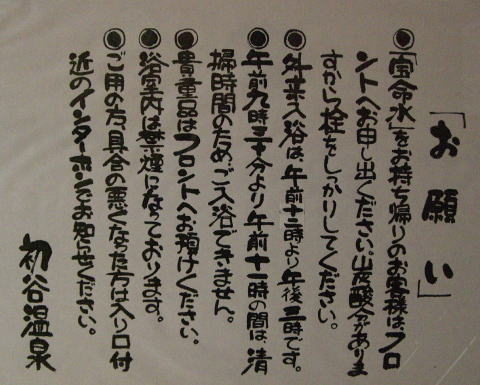 「お願い」
◉「宝命水」をお持ち帰りのお客様は、フロ
ントへお申し出ください。出炭酸ガがありま
すから栓をしっかりしてください。
◉外来入浴は、午前十一時より午後三時です。
◉午前九時三十分より午前十一時の間は、清
掃時間のため、ご入浴できません。
◉貴重品はフロントへお預けください。
◉浴室内は禁煙になっております。
◉ご用の方、具合の悪くなった方は入り口付
近のインターホンでお知せください。
初谷温泉